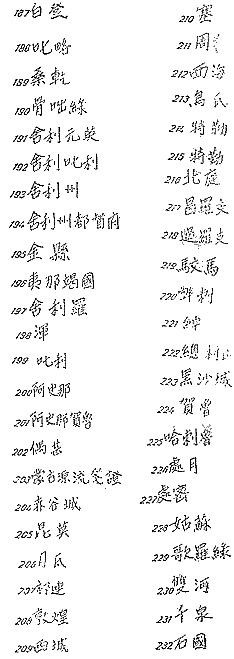 187 白登
188 叱略
189 桑乾
190 骨咄綠
191 舍利元英
192 舍利叱利
193 舍利州
194 舍利州都督府
195 金縣
196 夷那竭國
197 舍利羅
198 渾
199 叱利
200 阿史那
201 阿史那賀魯
202 偶甚
203 蒙古源流箋證
204 赤谷城
205 昆莫
206 月氏
207 祁連
208 敦煌
209 西域
210 塞
211 周
212 西海
213 烏氏
214 特勒
215 特勤
216 北庭
217 邑羅支
218 邏羅支
219 駮馬
220
221
222
223 黑沙城
224 賀魯
225 哈剌魯
226 處月
227 處密
228 姑蘇
229 歌羅綠
230 雙河
231 千泉
232 石國